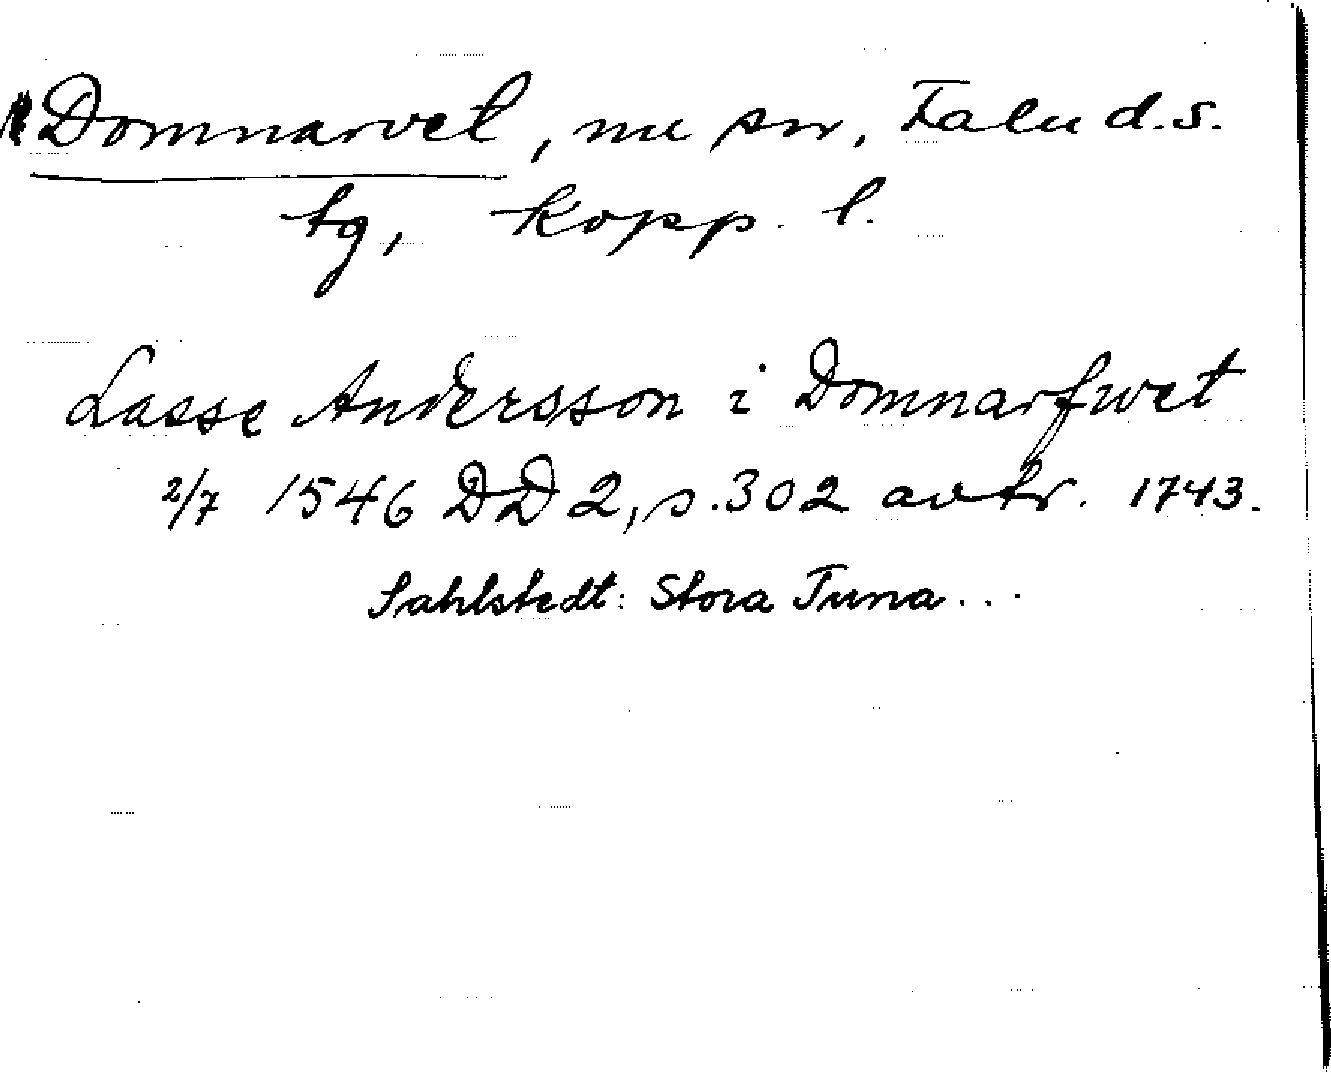 Domnarvet, nu sn, Falu d.s.
tg, Kopp. l.
Lasse Andersson i Domnarfwet
2/7 1546 DD 2, s. 302 avtr. 1743.
Sahlstedt: Stora Tuna...